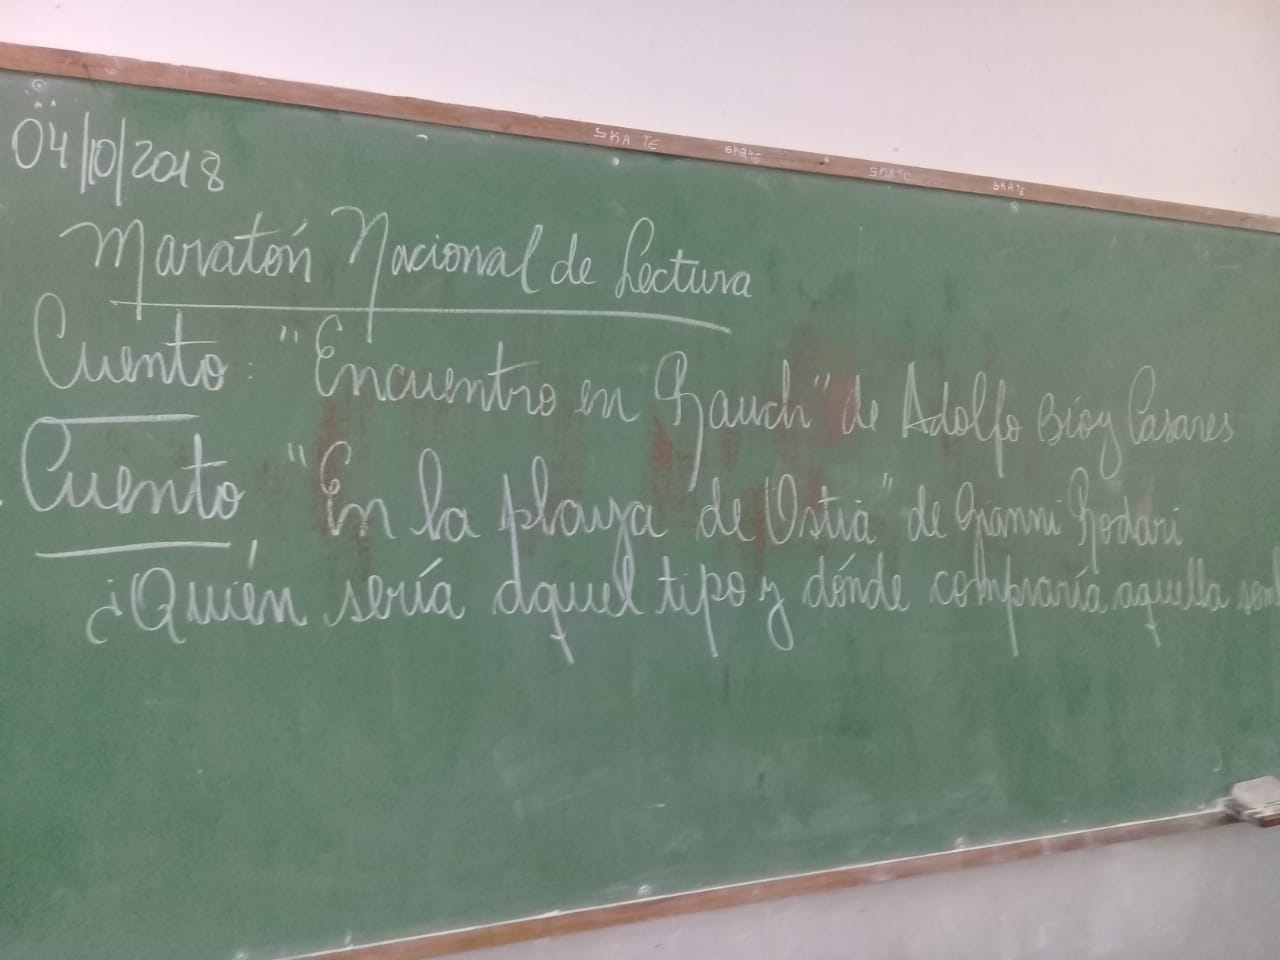 SKATE SKATE SKATE SKATE
04/10/2018
Maratón Nacional de Lectura
Cuento: "Encuentro en Rauch" de Adolfo Bioy Casares
Cuento "En la playa de Ostia" de Gianni Rodari
¿Quién sería aquel tipo y dónde compraría aquella